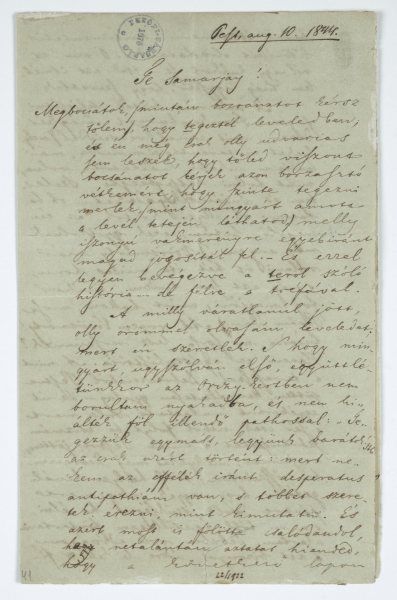 Pest, aug. 10. 1844.
Te Samarjay!
Megbocsátok, (miután bocsánatot kérsz
tőlem, hogy tegeztél leveledben,
és én még csak olly udvarias
sem leszek, hogy tőled viszont
bocsánatot kérjek azon borzasztó
vétkemért, hogy szinte tegezni
merlek, (mint mingyárt amott
a levél tetején láthatod) melly
iszonyú vakmerőségre egyébiránt
magad jogosítál fel. – És ezzel
legyen bevégezve a teről szóló
história – de félre a tréfával.
A milly váratlanul jött,
olly örömmel olvasám leveledet,
mert én szeretlek. S hogy min-
gyárt, úgyszólván első, együttlé-
tünkkor az Orczy-kertben nem
borúltam nyakadba, és nem ki-
álték föl illendő pathossal: Te-
gezzük egymást, legyünk barátok!
az csak azért történt: mert ne-
kem az effélék iránt desperatus
antipathiám van, s többet szere-
tek érezni, mint kimutatni. És
azért most is fölötte csalódandol,
ha netalántán azt hiended,
hogy a következő lapon
44
22/1922